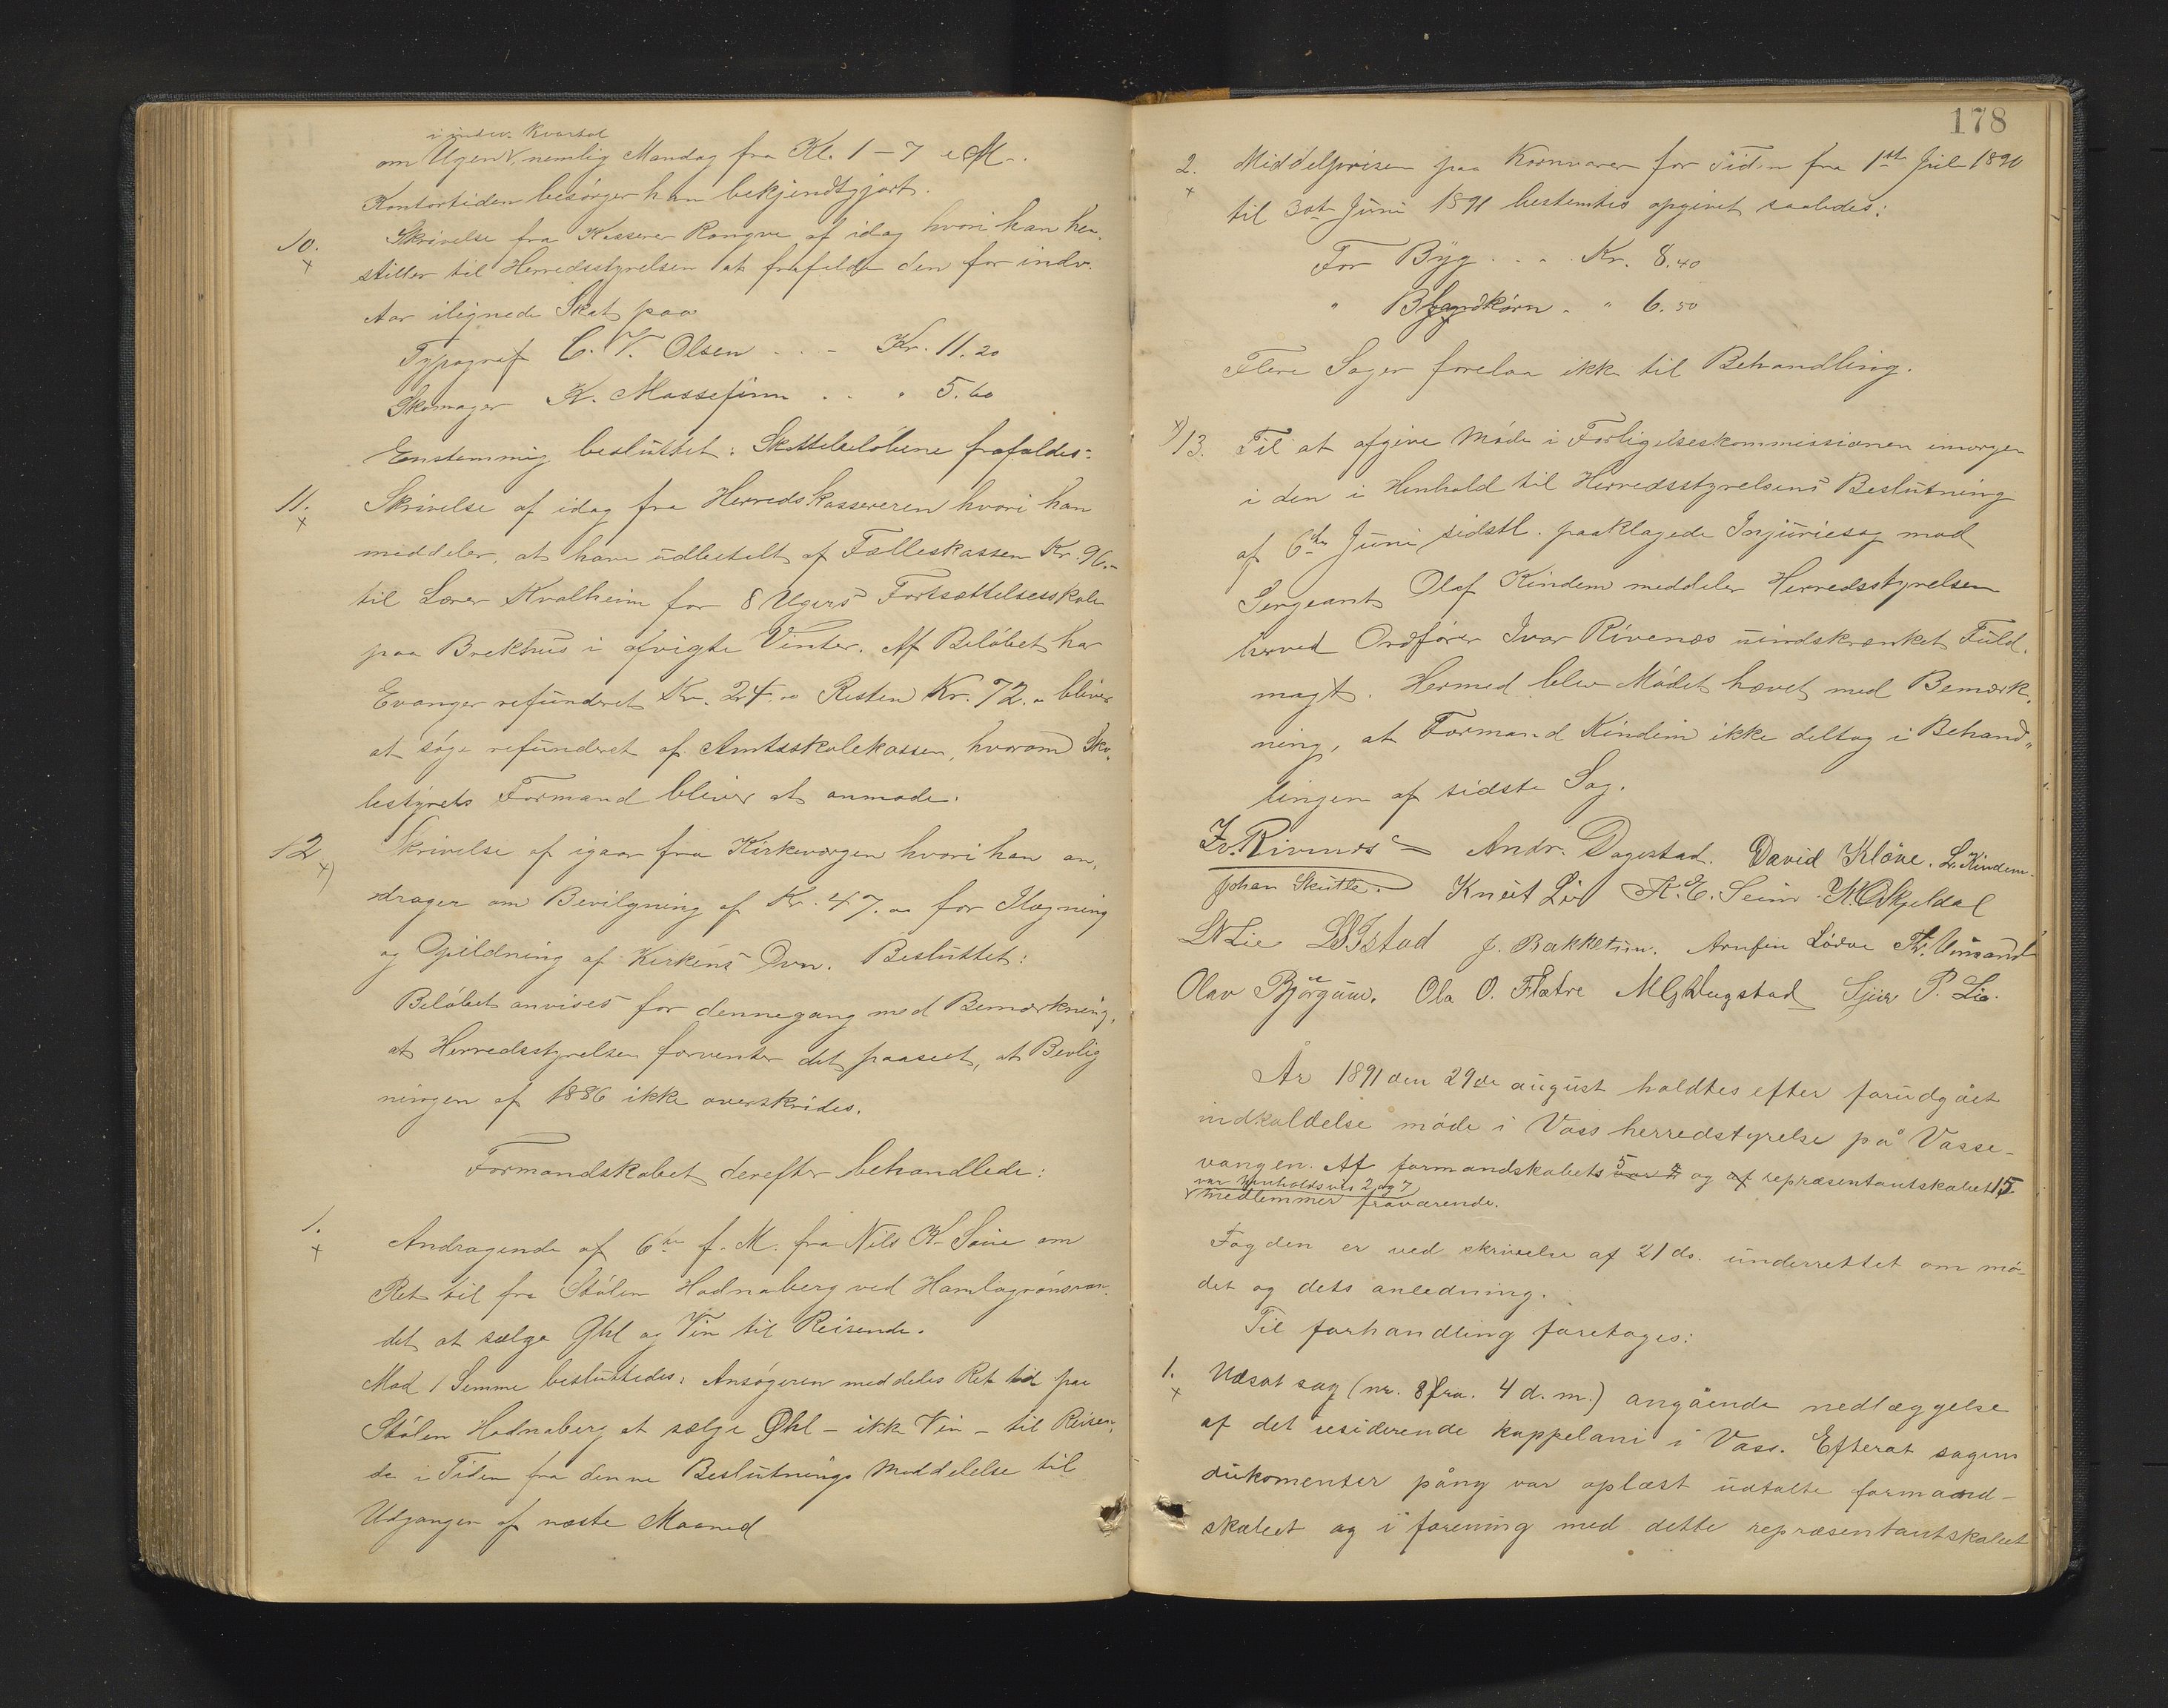 i indev. Kvartal
om Ugen, nemlig Mandag fra Kl. 1 – 7 e M.
Kontortiden besørger han bekjendtgjort.
10. Skrivelse fra Kasserer Rongve af idag hvori han hen-
stiller til Herredsstyrelsen at frafalde den for indv.
Aar ilignede Skat paa
Typograf C. V. Olsen . . – Kr. 11.20
Skomager K. Mossefinn . . " 5.60
Enstemmig besluttet: Skattebeløbene frafaldes.
11. Skrivelse af idag fra Herredskassereren hvori han
meddeler, at have udbetalt af Fælleskassen Kr. 96.-
til Lærer Kvalheim for 8 Ugers Fortsættelsesskole
paa Brekhus i afvigte Vinter. Af Beløbet har
Evanger refunderet Kr. 24.00 Resten Kr. 72.00 bliver
at søge refunderet af Amtsskolekassen, hvorom Sko-
lestyrets Formand bliver at anmode.
12 Skrivelse af igaar fra Kirkeværgen hvori han an-
drager om Bevilgning af Kr. 47.00 for Ilægning
og Opildning af Kirkens Ovn. Besluttet:
Beløbet anvises for dennegang med Bemærkning,
at Herredsstyrelsen forventer det paaseet, at Bevilg
ningen af 1886 ikke overskrides.
Formandskabet derefter behandlede:
1. Andragende af 6te f. M. fra Nils K. Saue om
Ret til fra Stølen Hodnaberg ved Hamlagrønsvan-
det at sælge Øhl og Vin til Reisende.
Mod 1 Stemme besluttedes: Ansøgeren meddeles Ret til paa
Stølen Hodnaberg at sælge Øhl – ikke Vin – til Reisen-
de i Tiden fra denne Beslutnings Meddelelse til
Udgangen af næste Maaned
178
2. Middelprisen paa Kornvarer for Tiden fra 1ste Juli 1890
til 30te Juni 1891 bestemtes opgivet saaledes:
For Byg . . . Kr. 8.40
" Blandkorn . " 6.50
Flere Sager forelaa ikke til Behandling.
13. Til at afgive Møde i Forligelseskommissionen imorgen
i den i Henhold til Herredsstyrelsens Beslutning
af 6te Juni sidstl. paaklagede Injuriesag mod
Sergeant Olaf Kindem meddeler Herredsstyrelsen
herved Ordfører Ivar Rivenæs uindskrænket Fuld-
magt. Hermed blev Mødet hævet med Bemærk-
ning, at Formand Kindem ikke deltog i Behand-
lingen af sidste Sag.
Iv. Rivenæs Andr. Dagestad. David Kløve. L. Kindem.
Johan Skutle. Knut Liv K. E. Seim
N Lie J. Bakketun. Arnfin Lødve Th. Vinsand
Olav Bjørgum. Ola O. Flatre Sjur P. Lie.
År 1891 den 29de august holdtes efter forudgået
indkaldelse møde i Voss herredstyrelse på Vosse-
vangen. Af formandskabets 5 og af repræsentantskabet 15
var henholdsvis 2 og 7
medlemmer fraværende.
Fogden er ved skrivelse af 21 ds. underrettet om mø-
det og dets anledning.
Til forhandling foretoges:
1. Udsat sag (nr. 8 fra. 4 d. m.) angående nedlæggelse
af det residerende kappelani i Voss. Efterat sagens
dukomenter påny var oplæst udtalte formand-
skabet og i forening med dette repræsentantskabet